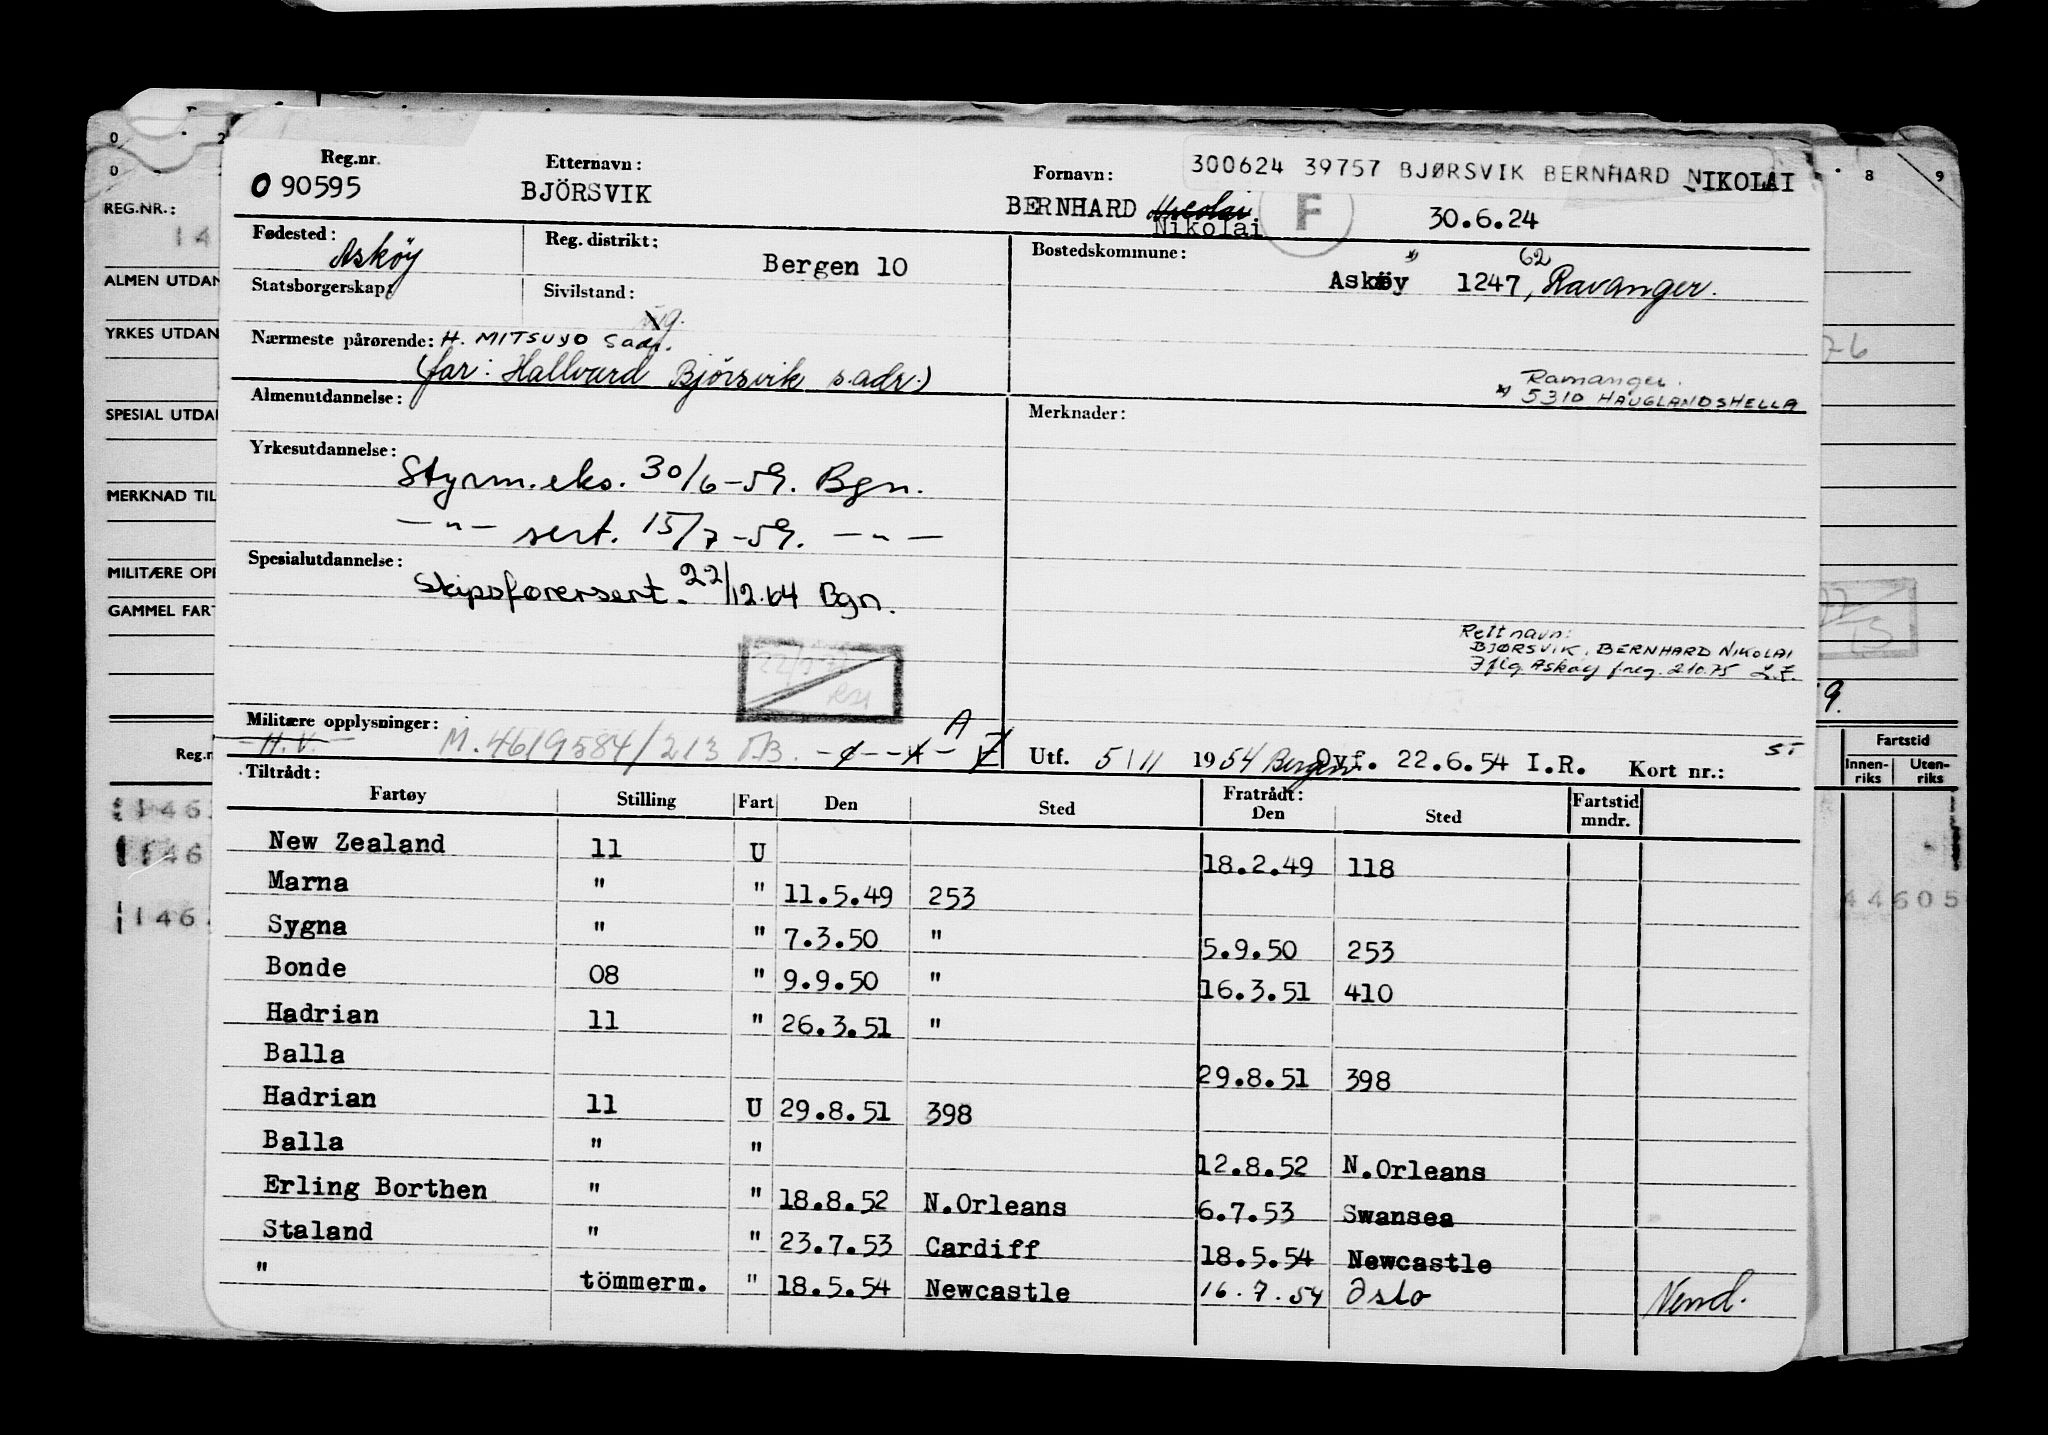 0 . 2
8 9
REG.NR.:
14
ALMEN UTDAN
YRKES UTDAN
SPESIAL UTDA
MERKNAD TIL
MILITÆRE OPP
GAMMEL FART
Reg.n
146
146
146
76
9.
Fartstid
Innen-riks Uten-riks
44605
300624 39757 BJØRSVIK BERNHARD NIKOLAI
Reg.nr. Etternavn: Fornavn:
090595 BJÖRSVIK BERNHARD Nicolai Nikolai F 30.6.24
Fødested: Asköy Reg. distrikt: Bergen 10 Bostedskommune: Asköy 1247, 62 Ravanger.
Statsborgerskap: Sivilstand: ug.
Nærmeste pårørende: H. MITSUYO S adr.
(far: Hallvard Björsvik s.adr.)
Ramanger.
x) 5310 HAUGLANDSHELLA
Almenutdannelse: Merknader:
Yrkesutdannelse: Styrm.eks. 30/6-59. Bgn.
—"— sert. 15/7-59. —"—
Spesialutdannelse: Skipsførersert. 22/12.64 Bgn.
Rett navn:
BJØRSVIK, BERNHARD NIKOLAI
Iflg Askøy freg. 21075
Militære opplysninger: H.V. M.4619584/213 A
Utf. 5/11 1954 Bergen Ovf. 22.6.54 I.R. Kort nr.:
Tiltrådt: Fratrådt:
Fartøy Stilling Fart Den Sted Den Sted Fartstid mndr.
New Zealand 11 U 18.2.49 118
Marna " " 11.5.49 253
Sygna " " 7.3.50 " 5.9.50 253
Bonde 08 " 9.9.50 " 16.3.51 410
Hadrian 11 " 26.3.51 "
Balla 29.8.51 398
Hadrian 11 U 29.8.51 398
Balla " " 12.8.52 N.Orleans
Erling Borthen " " 18.8.52 N.Orleans 6.7.53 Swansea
Staland " " 23.7.53 Cardiff 18.5.54 Newcastle
" tömmerm. " 18.5.54 Newcastle 16.7.54 Oslo Vend.